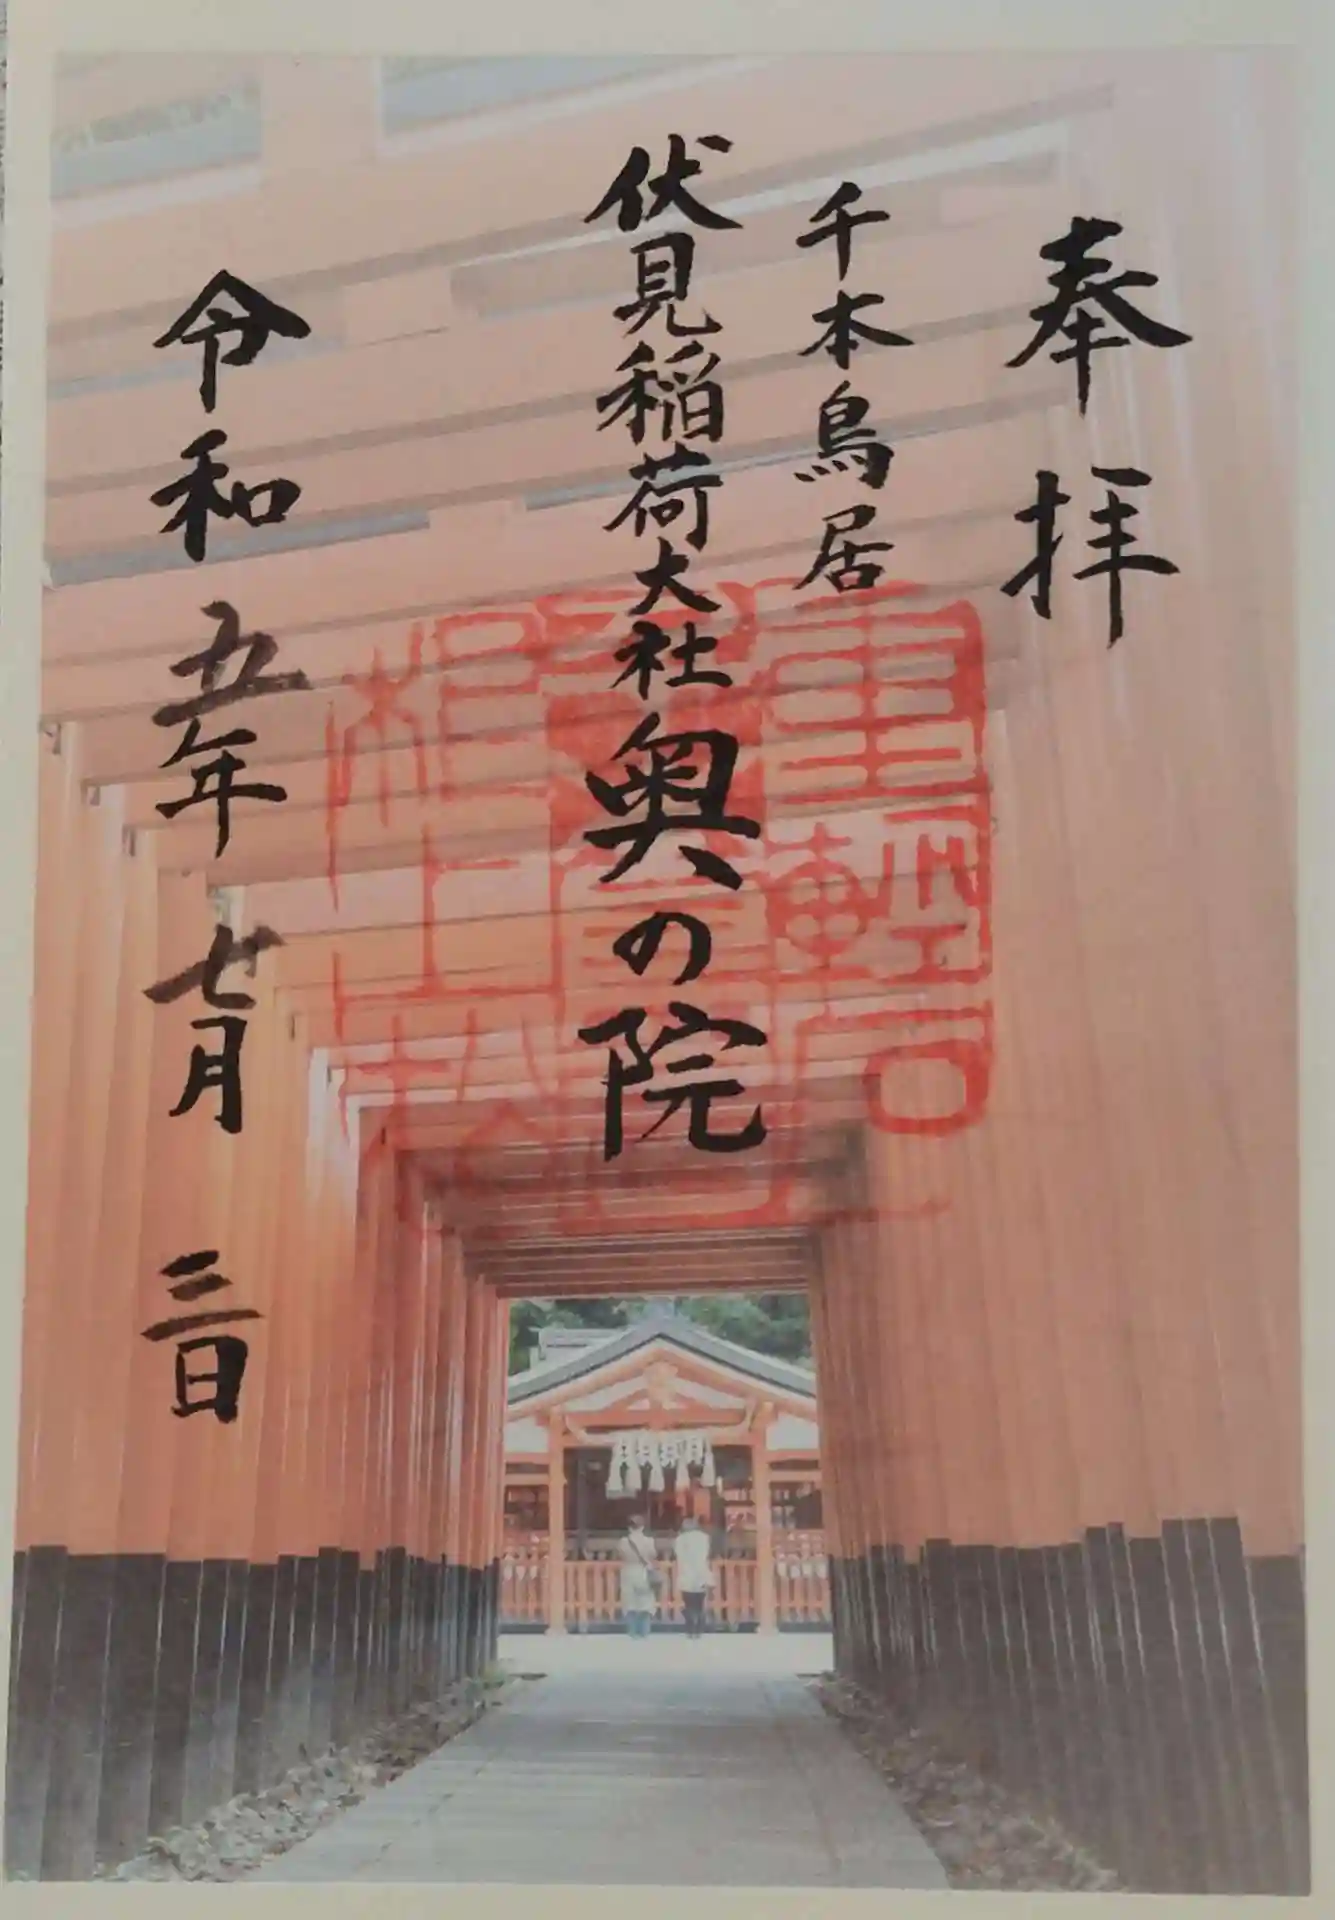 奉拝
千本鳥居
伏見稲荷大社奥の院
令和五年七月三日